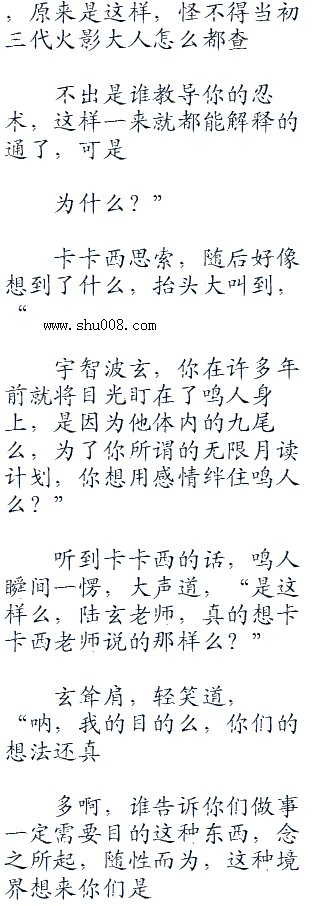 ，原来是这样，怪不得当初
三代火影大人怎么都查
不出是谁教导你的忍
术，这样一来就都能解释的
通了，可是
为什么？”
卡卡西思索，随后好像
想到了什么，抬头大叫到，
“
www.shu008.com
宇智波玄，你在许多年
前就将目光盯在了鸣人身
上，是因为他体内的九尾
么，为了你所谓的无限月读
计划，你想用感情绊住鸣人
么？”
听到卡卡西的话，鸣人
瞬间一愣，大声道，“是这
样么，陆玄老师，真的想卡
卡西老师说的那样么？”
玄耸肩，轻笑道，
“呐，我的目的么，你们的
想法还真
多啊，谁告诉你们做事
一定需要目的这种东西，念
之所起，随性而为，这种境
界想来你们是